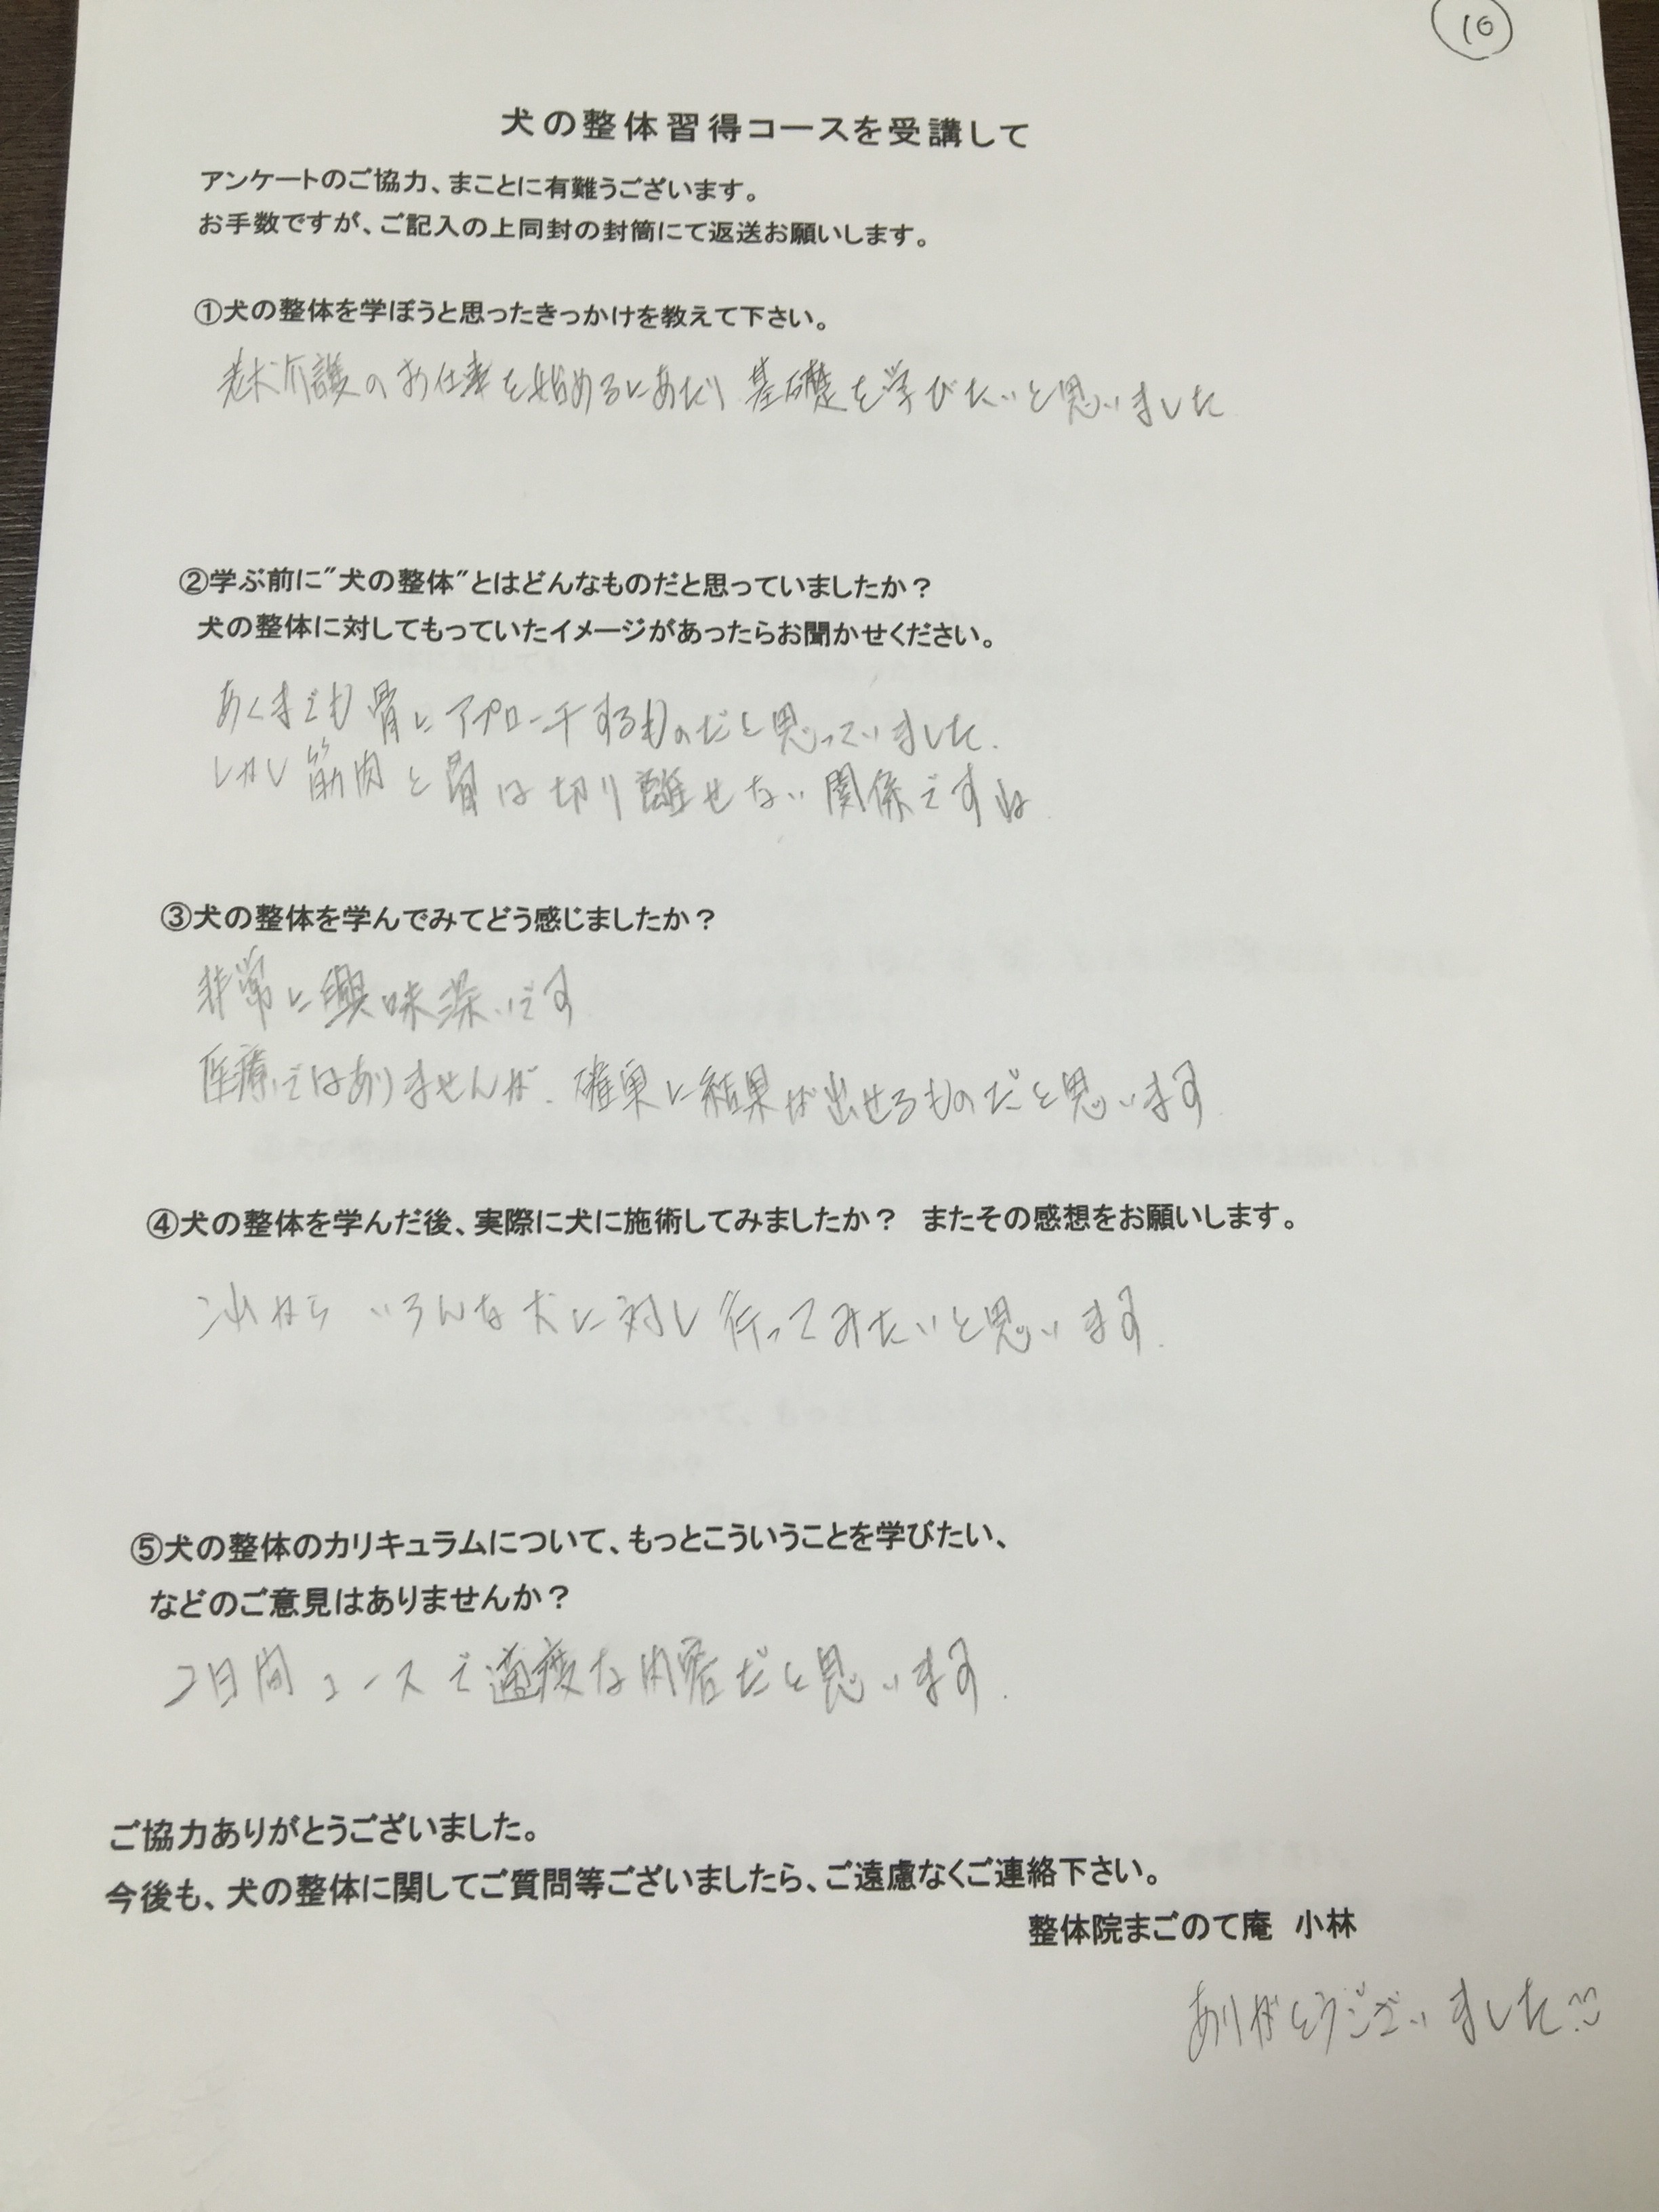 10
犬の整体習得コースを受講して
アンケートのご協力、まことに有難うございます。
お手数ですが、ご記入の上同封の封筒にて返送お願いします。
①犬の整体を学ぼうと思ったきっかけを教えて下さい。
老犬介護のお仕事を始めるにあたり 基礎を学びたいと思いました
②学ぶ前に"犬の整体"とはどんなものだと思っていましたか？
犬の整体に対してもっていたイメージがあったらお聞かせください。
あくまでも骨にアプローチするものだと思っていました.
しかし筋肉と骨は切り離せない関係ですね
③犬の整体を学んでみてどう感じましたか？
非常に興味深いです
医療ではありませんが. 確実に結果が出せるものだと思います
④犬の整体を学んだ後、実際に犬に施術してみましたか？ またその感想をお願いします。
これから いろんな犬に対し行ってみたいと思います.
⑤犬の整体のカリキュラムについて、もっとこういうことを学びたい、
などのご意見はありませんか？
2日間コースで適度な内容だと思います.
ご協力ありがとうございました。
今後も、犬の整体に関してご質問等ございましたら、ご遠慮なくご連絡下さい。
整体院まごのて庵 小林
ありがとうございました